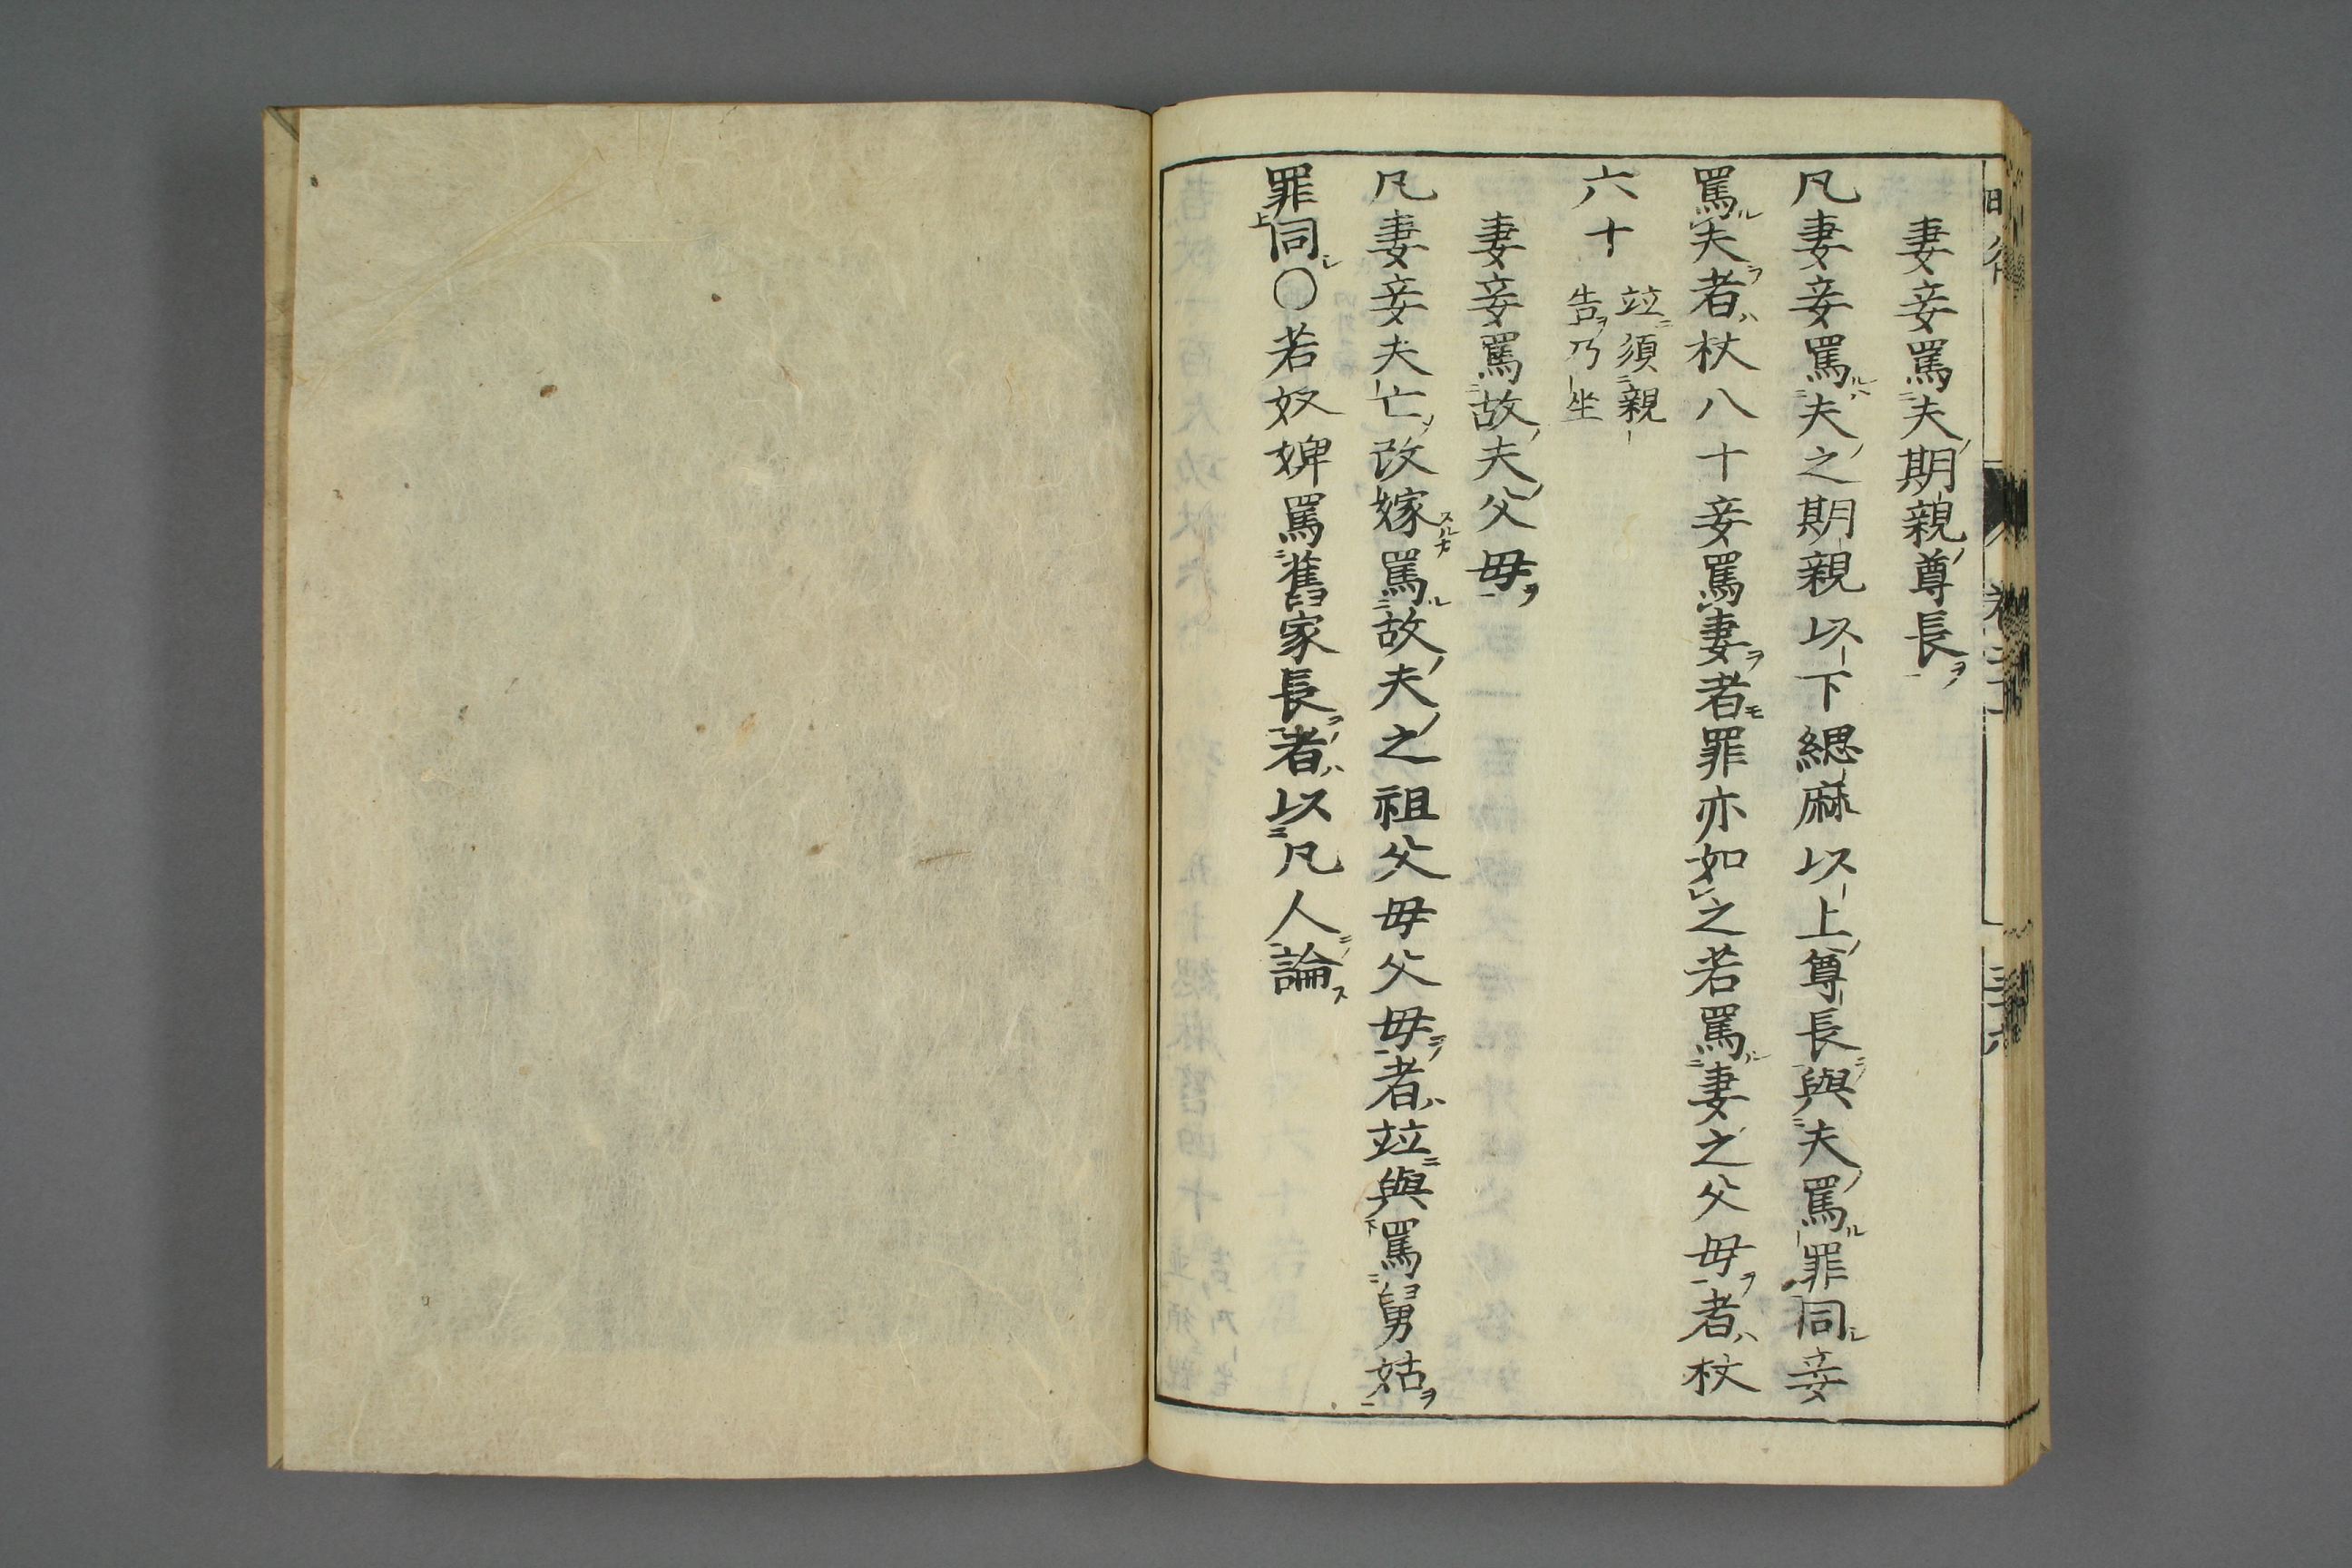 妻妾罵夫期親尊長
凡妻妾罵夫之期親以下緦麻以上尊長與夫罵罪同妾
罵夫者杖八十妾罵妻者罪亦如之若罵妻之父母者杖
六十 竝須親告乃坐
妻妾罵故夫父母
凡妻妾夫亡改嫁罵故夫之祖父母父母者竝與罵舅姑
罪同〇若奴婢罵舊家長者以凡人論